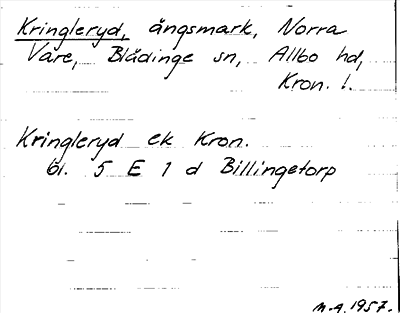 Kringleryd, ängsmark, Norra
Vare, Blädinge sn, Allbo hd,
Kron. l.
Kringleryd ek Kron.
bl. 5 E 1 d Billingetorp
M.A. 1957.